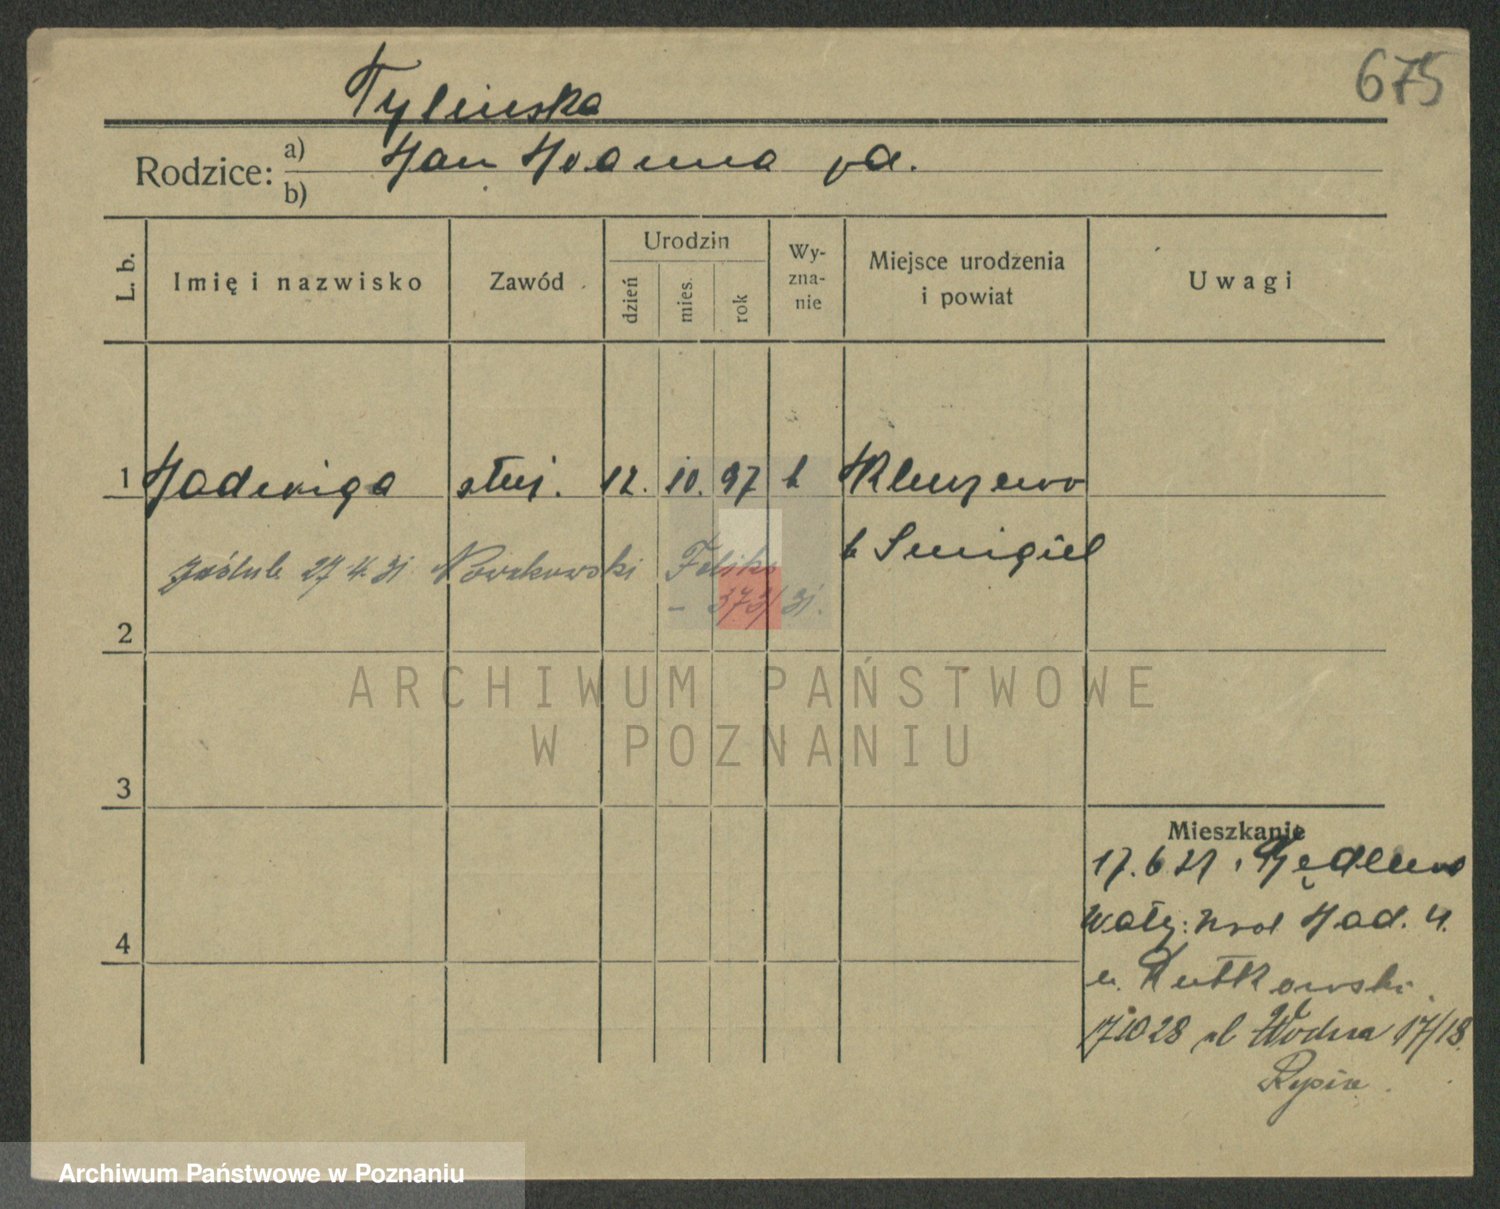 675
Tylinska
Rodzice: a) Jan Joanna
b)
L. b. Imię i nazwisko Zawód Urodzin dzień mies. rok Wy-zna-nie Miejsce urodzenia i powiat Uwagi
1 Jadwiga służ. 12. 10. 97 k Kluczewo
k Smigiel
zaślub. 27 4. 31 Nowakowski Feliks
– 373/31.
2
ARCHIWUM PAŃSTWOWE
W POZNANIU
3
Mieszkanie
17.6.21
Wały: Jad. 4.
4
u. Rutkowski.
17.10 28 ul Wodna 17/18.
Archiwum Państwowe w Poznaniu